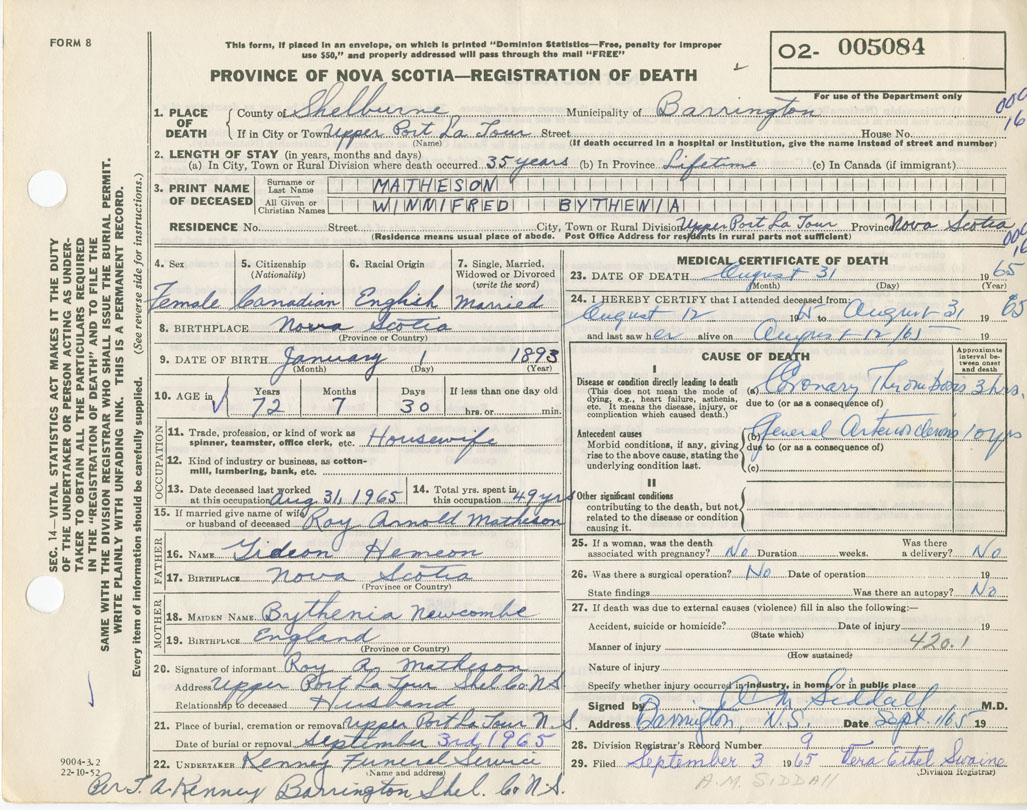 FORM 8
This form, if placed in an envelope, on which is printed "Dominion Statistics—Free, penalty for improper
use $50," and properly addressed will pass through the mail "FREE"
O2- 005084
PROVINCE OF NOVA SCOTIA—REGISTRATION OF DEATH
For use of the Department only
1. PLACE OF DEATH
County of Shelburne Municipality of Barrington
If in City or Town Upper Port La Tour Street House No.
(Name) (If death occurred in a hospital or Institution, give the name instead of street and number)
000
16
2. LENGTH OF STAY (in years, months and days)
(a) In City, Town or Rural Division where death occurred 35 years (b) In Province Lifetime (c) In Canada (if immigrant)
3. PRINT NAME OF DECEASED
Surname or Last Name MATHESON
All Given or Christian Names WINNIFRED BYTHENIA
RESIDENCE No. Street City, Town or Rural Division Upper Port La Tour Province Nova Scotia
(Residence means usual place of abode. Post Office Address for residents in rural parts not sufficient)
000
16
4. Sex 5. Citizenship (Nationality) 6. Racial Origin 7. Single, Married, Widowed or Divorced (write the word)
Female Canadian English Married
8. BIRTHPLACE Nova Scotia
(Province or Country)
9. DATE OF BIRTH January 1 1893
(Month) (Day) (Year)
10. AGE in Years Months Days If less than one day old
72 7 30 hrs. or min.
OCCUPATION
11. Trade, profession, or kind of work as spinner, teamster, office clerk, etc. Housewife
12. Kind of industry or business, as cotton-mill, lumbering, bank, etc.
13. Date deceased last worked at this occupation Aug 31, 1965 14. Total yrs. spent in this occupation 49 yrs
15. If married give name of wife or husband of deceased Roy Arnold Matheson
FATHER
16. NAME Gideon Hemeon
17. BIRTHPLACE Nova Scotia
(Province or Country)
MOTHER
18. MAIDEN NAME Bythenia Newcombe
19. BIRTHPLACE England
(Province or Country)
20. Signature of informant Roy A. Matheson
Address Upper Port La Tour Shel Co N.S
Relationship to deceased Husband
21. Place of burial, cremation or removal Upper Port La Tour N.S.
Date of burial or removal September 3rd, 1965
22. UNDERTAKER Kenney Funeral Service
(Name and address)
Per F. A. Kenney Barrington Shel. Co N.S.
9004-3.2
22-10-52
MEDICAL CERTIFICATE OF DEATH
23. DATE OF DEATH August 31 1965
(Month) (Day) (Year)
24. I HEREBY CERTIFY that I attended deceased from:
August 12 1965 to August 31 1965
and last saw her alive on August 12/65 19
CAUSE OF DEATH
Approximate interval between onset and death
I
Disease or condition directly leading to death
(This does not mean the mode of dying, e.g., heart failure, asthenia, etc. It means the disease, injury, or complication which caused death.)
(a) Coronary Thrombosis 3 hrs.
due to (or as a consequence of)
Antecedent causes
Morbid conditions, if any, giving rise to the above cause, stating the underlying condition last.
(b) General Arteriosclerosis 10 yrs
due to (or as a consequence of)
(c)
II
Other significant conditions
contributing to the death, but not related to the disease or condition causing it.
25. If a woman, was the death associated with pregnancy? No Duration weeks. Was there a delivery? No
26. Was there a surgical operation? No Date of operation 19
State findings Was there an autopsy? No
27. If death was due to external causes (violence) fill in also the following:—
Accident, suicide or homicide? Date of injury 19
(State which)
Manner of injury 420.1
(How sustained)
Nature of injury
Specify whether injury occurred in industry, in home, or in public place
Signed by A M Siddall M.D.
Address Barrington, N.S. Date Sept. 1/65 19
28. Division Registrar's Record Number 9
29. Filed September 3 1965 Vera Ethel Swaine
(Division Registrar)
A.M. SIDDAll
SEC. 14—VITAL STATISTICS ACT MAKES IT THE DUTY
OF THE UNDERTAKER OR PERSON ACTING AS UNDER-
TAKER TO OBTAIN ALL THE PARTICULARS REQUIRED
IN THE "REGISTRATION OF DEATH" AND TO FILE THE
SAME WITH THE DIVISION REGISTRAR WHO SHALL ISSUE THE BURIAL PERMIT.
WRITE PLAINLY WITH UNFADING INK. THIS IS A PERMANENT RECORD.
Every item of information should be carefully supplied. (See reverse side for instructions.)